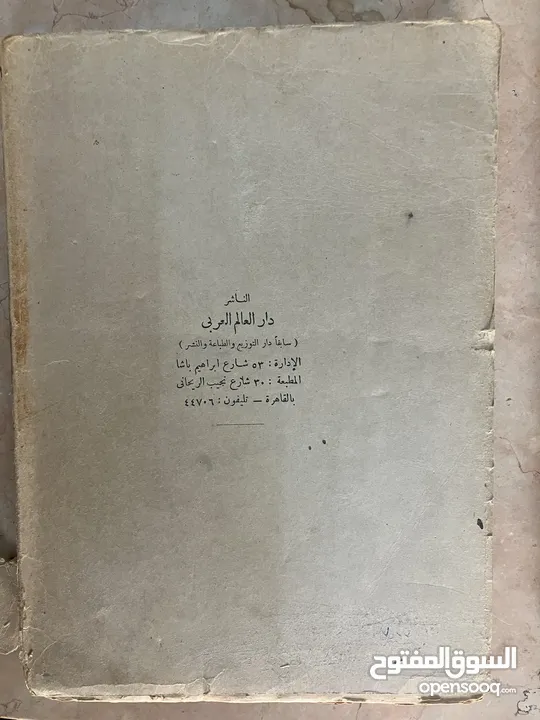 الناشر
دار العالم العربى
( سابقاً دار التوزيع والطباعة والنشر )
الإدارة : ٥٣ شارع ابراهيم باشا
المطبعة : ٣٠ شارع نجيب الريحانى
بالقاهرة — تليفون : ٤٤٧٠٦
السوق المفتوح
opensooq.com